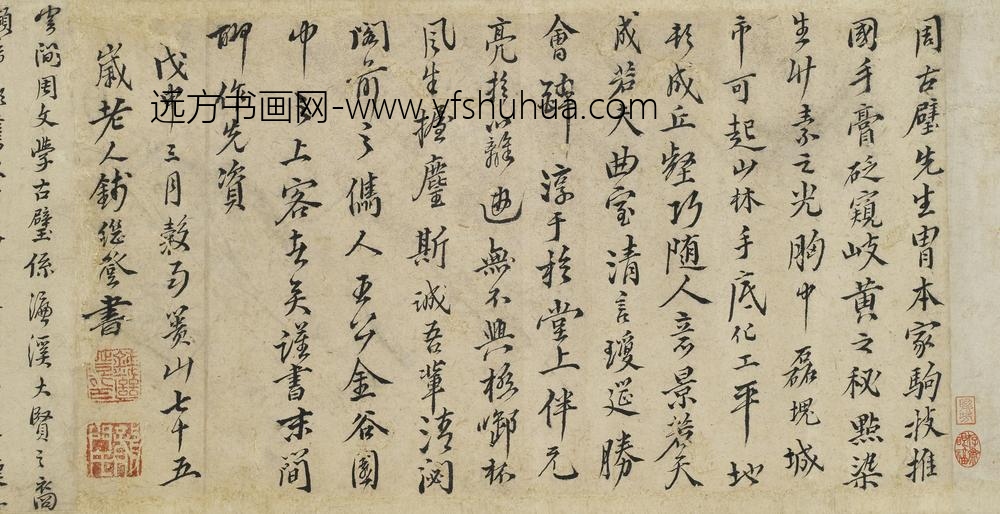 周古壁先生胄本家駒技推
國手膏砭窺岐黃之秘點染
生艸素之光胸中磊塊城
市可起山林手底化工平地
成丘壑巧隨人意景若天
成若夫曲室清言瓊筵勝
會醉淳于於堂上伴元
亮於籬邊無不興極啣杯
風生握麈斯誠吾輩清
閣前之儁人王公金谷園
中之上客者矣謹書末簡
聊作先資
戊申三月穀雨簣山七十五
歲老人錢繼登書
雲間周文學古壁係濂溪大賢之裔
远方书画网-www.yfshuhua.com